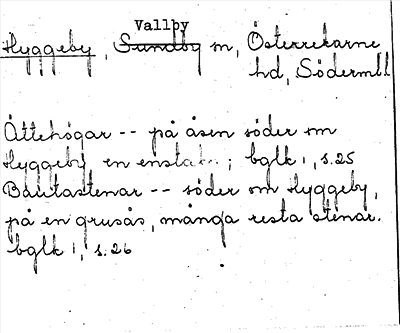 Vallby
Hyggeby, Sundby sn, Österrekarne
hd, Söderml
Ättehögar -- på åsen söder om
Hyggeby en enstaka; bglk 1, s.25
Bautastenar -- söder om Hyggeby,
på en grusås, många resta stenar.
bglk 1, s.26